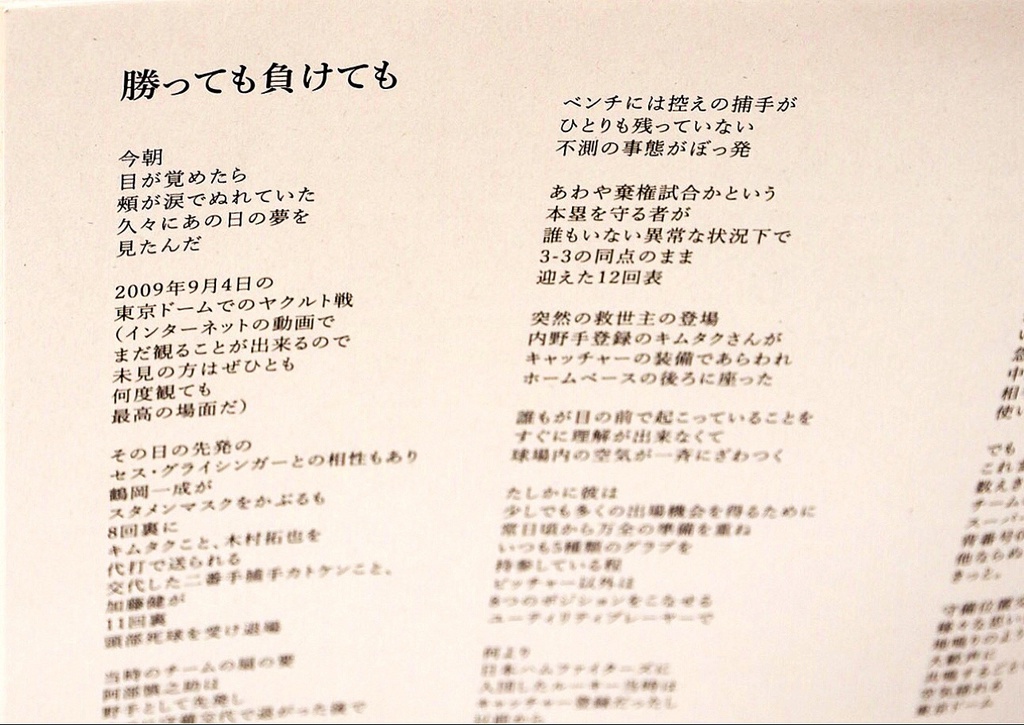 勝っても負けても
今朝
目が覚めたら
頬が涙でぬれていた
久々にあの日の夢を
見たんだ
2009年9月4日の
東京ドームでのヤクルト戦
（インターネットの動画で
まだ観ることが出来るので
未見の方はぜひとも
何度観ても
最高の場面だ）
その日の先発の
セス・グライシンガーとの相性もあり
鶴岡一成が
スタメンマスクをかぶるも
8回裏に
キムタクこと、木村拓也を
代打で送られる
交代した二番手捕手カトケンこと、
加藤健が
11回裏
頭部死球を受け退場
当時のチームの扇の要
阿部慎之助は
野手として先発し
ベンチには控えの捕手が
ひとりも残っていない
不測の事態がぼっ発
あわや棄権試合かという
本塁を守る者が
誰もいない異常な状況下で
3-3の同点のまま
迎えた12回表
突然の救世主の登場
内野手登録のキムタクさんが
キャッチャーの装備であらわれ
ホームベースの後ろに座った
誰もが目の前で起こっていることを
すぐに理解が出来なくて
球場内の空気が一斉にざわつく
たしかに彼は
少しでも多くの出場機会を得るために
常日頃から万全の準備を重ね
いつも5種類のグラブを
持参している程
ピッチャー以外は
8つのポジションをこなせる
ユーティリティプレーヤーで
何より
日本ハムファイターズに
入団したルーキー当時は
キャッチャー登録だったし
でも
これ
数えき
チーム
スーパー
背番号0
他ならぬ
きっと。